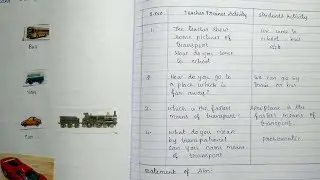 Bus
Car
S.No.
Teacher Trainee Activity
Students Activity
1.
The teacher show
some pictures of
transport
How do you come
to school
we come to
school by
bus
2.
How do you go to
a place which is
far away?
we can go by
train or bus
3.
which is the fastest
means of transport?
Aeroplane is the
fastest means of
transport.
4.
what do you mean
by transportation
can you come means
of transport
problematic
Statement of Aim: